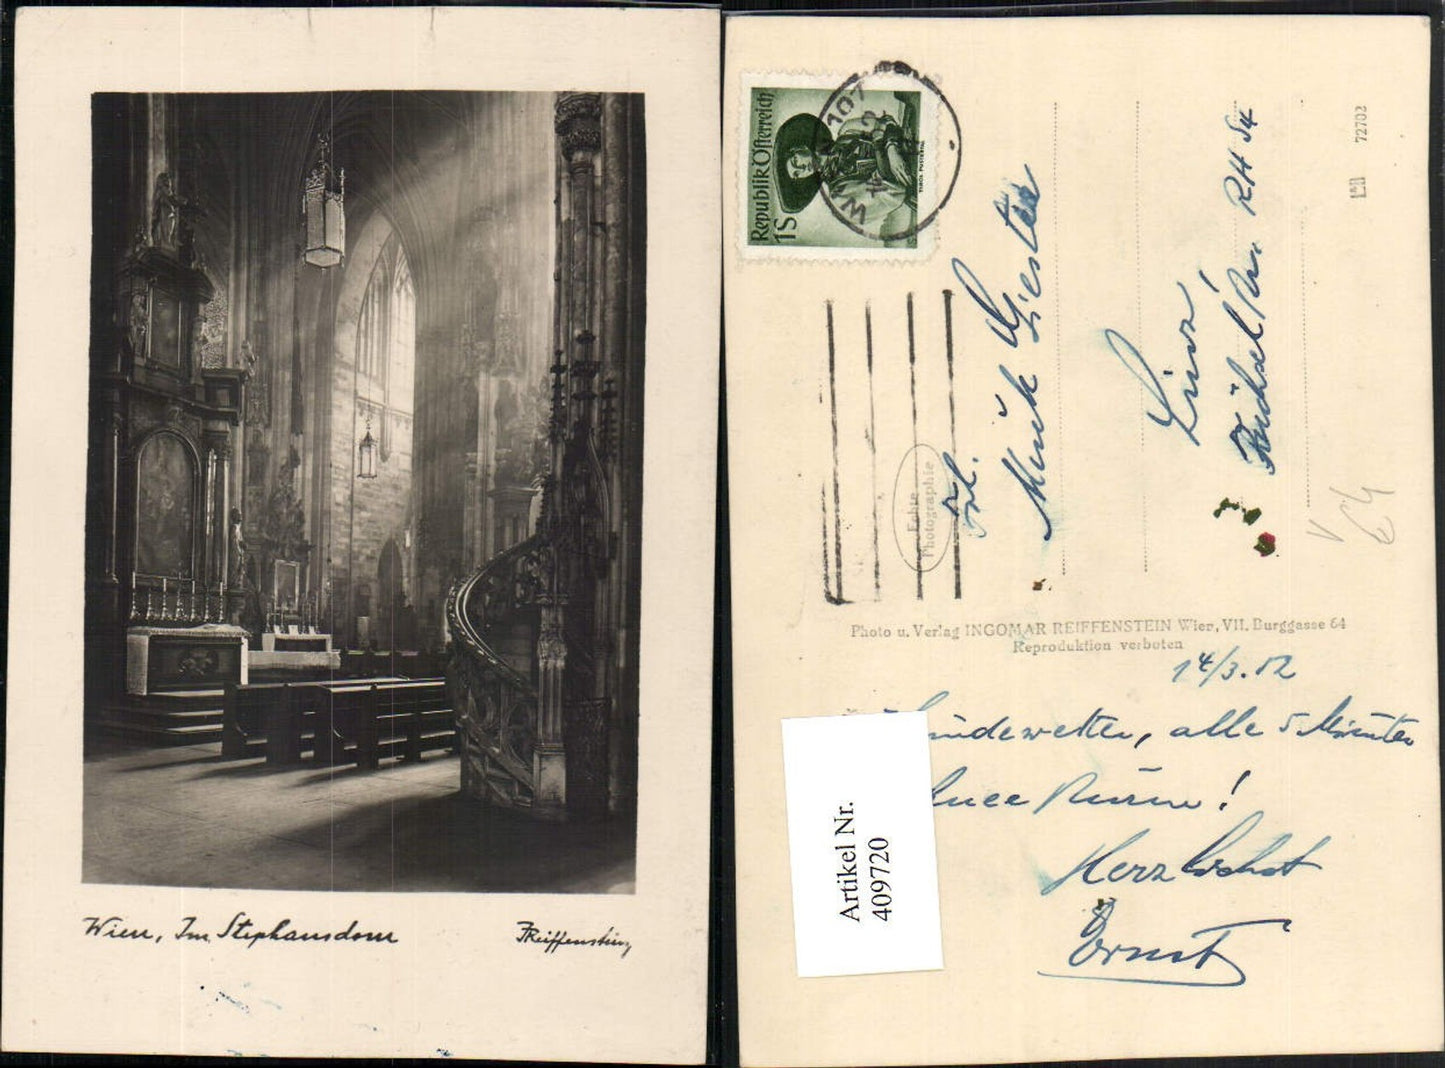 Wien, Im Stephansdom
Reiffenstein
Republik Österreich
1S
TIROL PUSTERTAL
WIEN 107
Echte
Photographie
Frl.
Linz
RH 54
72702
Photo u. Verlag INGOMAR REIFFENSTEIN Wien, VII. Burggasse 64
Reproduktion verboten
14/3.52
Hundewetter, alle 5 Minuten
Herzlichst
Ernst
Artikel Nr.
409720